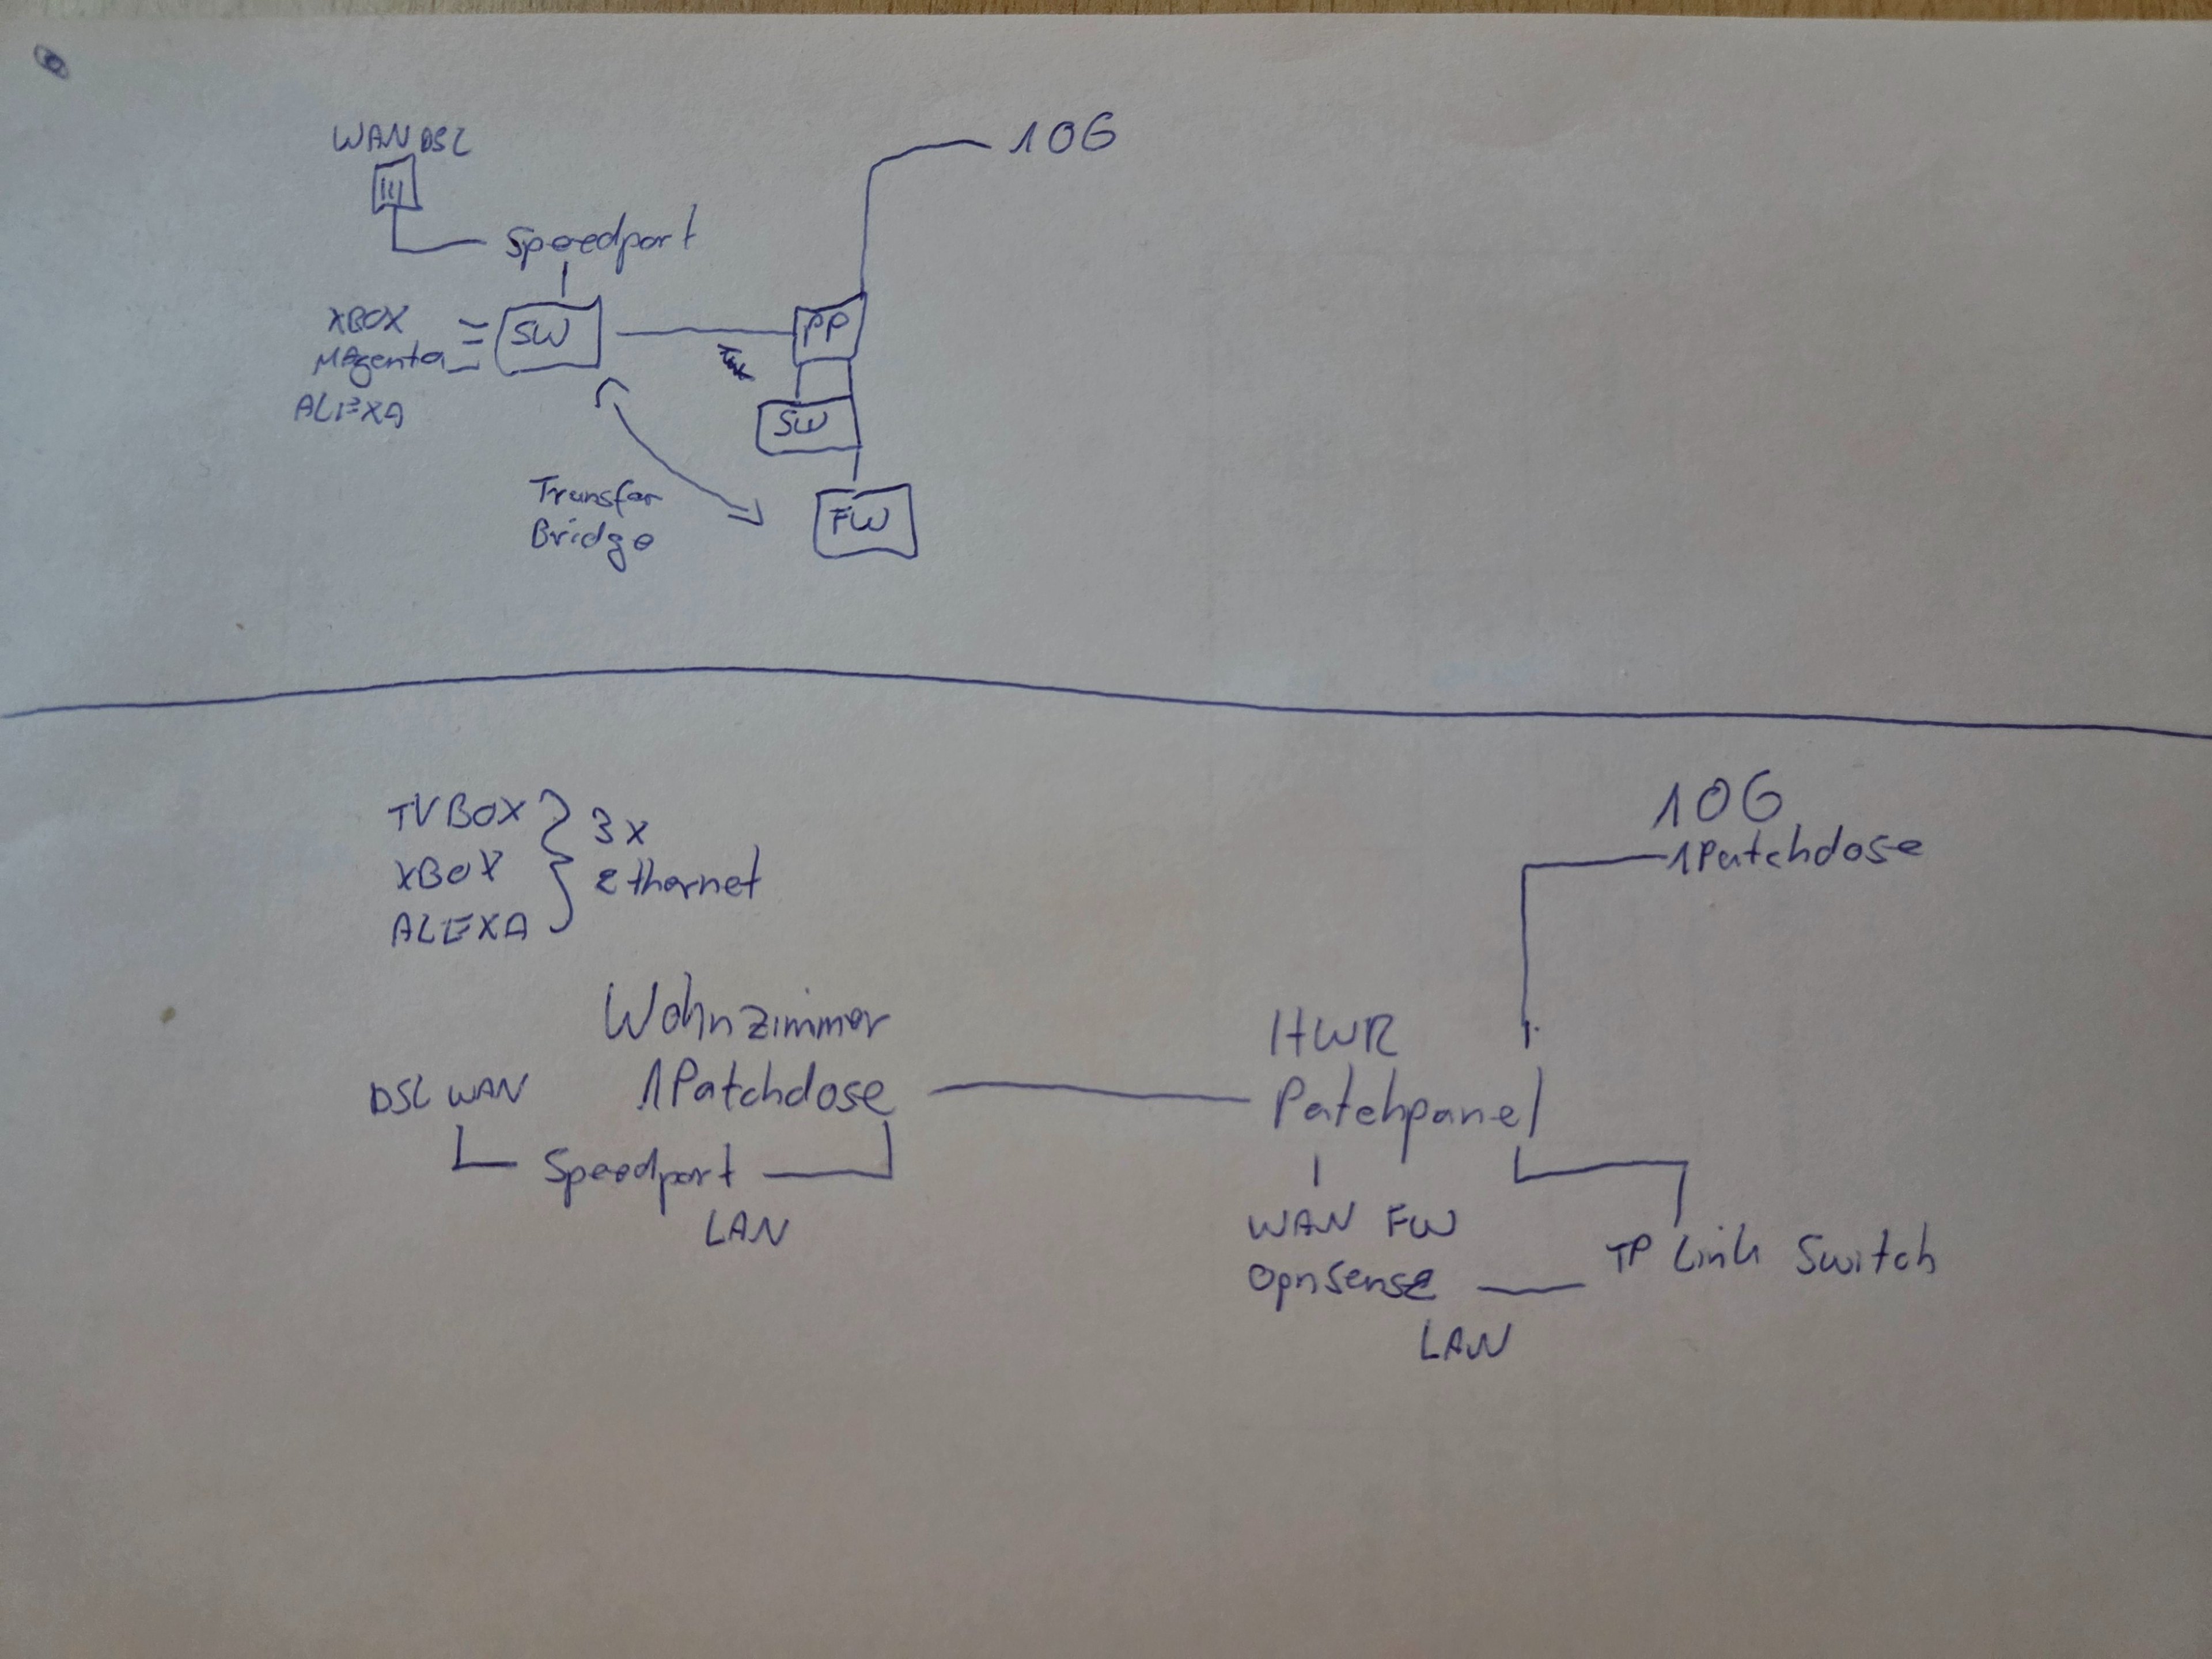 WAN DSL
10G
Speedport
XBOX
MAgenta
ALEXA
SW
PP
SW
FW
Transfer
Bridge
TV BOX
XBOX
ALEXA
3x
Ethernet
10G
1 Patchdose
Wohnzimmer
1 Patchdose
DSL WAN
Speedport
LAN
HWR
Patchpanel
WAN FW
OpnSense
LAN
TP Link Switch